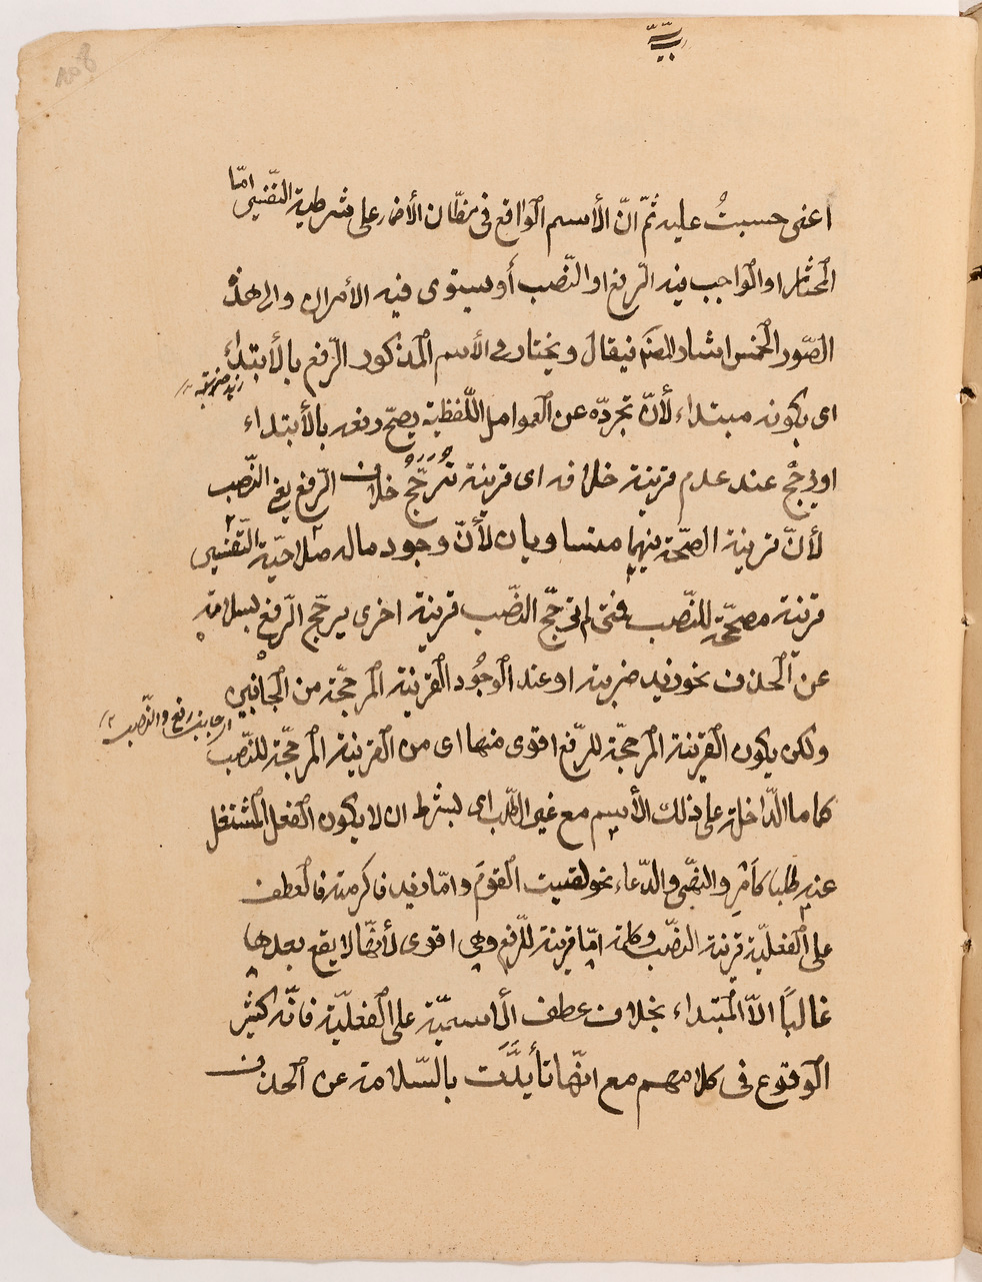 اعنى حسبتُ عليه ثمّ انّ الأسم الواقع فى مظّان الأضمار على شرطية التّفسير امّا
المختار او الواجب فيه الرّفع او النّصب أو يستوى فيه الأمران والى هذه
الصّور الخمس اشار المصنف فيقال ويختار فى الأسم المذكور الرّفع بالأبتداء
زيد ضربته
اى بكونه مبتداء لأنّ تجرّده عن العوامل اللّفظية يصحّ رفعه بالأبتداء
عند عدم قرينة خلافه اى قرينة ترجّح خلاف الرّفع يعنى النّصب
لأنّ قرينة الصحّة فيهما متساويان لأنّ وجود ماله صلاحيّة التّفسير
قرينة مصحّحة للنّصب فمتى لم ترجّح النّصب قرينة اخرى يرجّح الرّفع بسلامته
عن الحذف نحو زيد ضربته او عند الوجُود القرينة المرجّحة من الجانبين
اى جانب رفع والنّصب
ولكن يكون القرينة المرجحّة للرّفع اقوى منها اى من القرينة المرجحّة للنّصب
كاما الدّاخلة على ذلك الأسم مع غير الطّلب اى بشرط ان لا يكون الفعل المشتغل
عنه طلبا كأمر والنهى والدّعاء نحو لقيت القومَ وامّا زيد فاكرمته فالعطف
على الفعليّة قرينة النصّب وكلمة امّا قرينة للرّفع وهى اقوى لأنّها لا يقع بعدها
غالبًا الاّ المبتداء بخلاف عطف الأسميّة على الفعليّة فانّه كثير
الوقوع فى كلامهم مع انّها تأيدَّت بالسّلامة عن الحذف